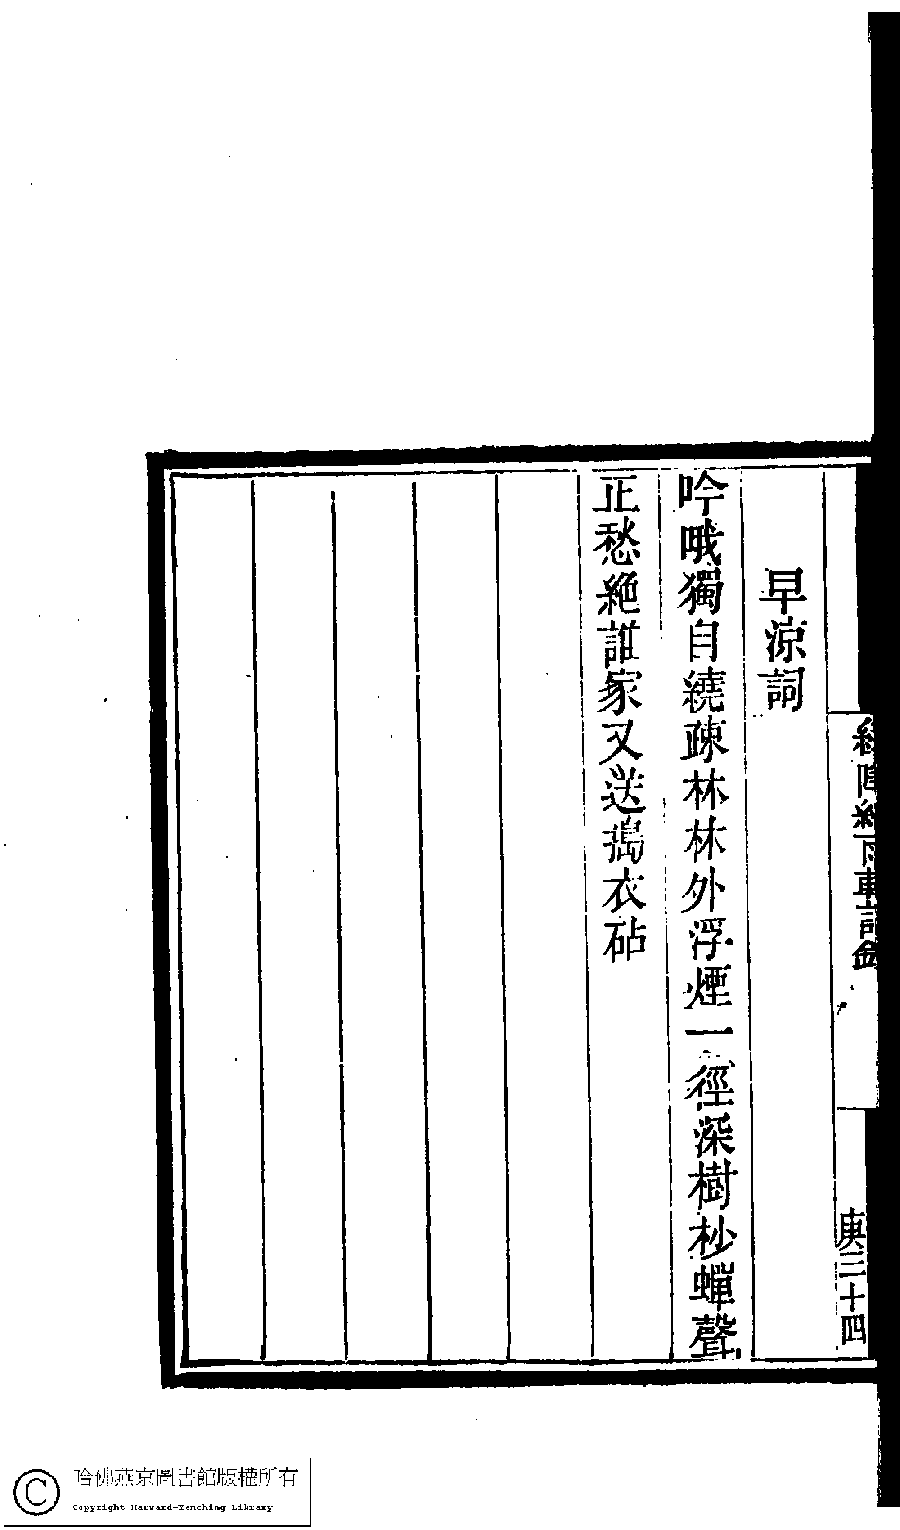 早涼詞
吟哦獨自繞疎林林外浮煙一徑深樹杪蟬聲
正愁絶誰家又送搗衣砧
庚三十四
哈佛燕京圖書館版權所有
Copyright Harvard-Yenching Library